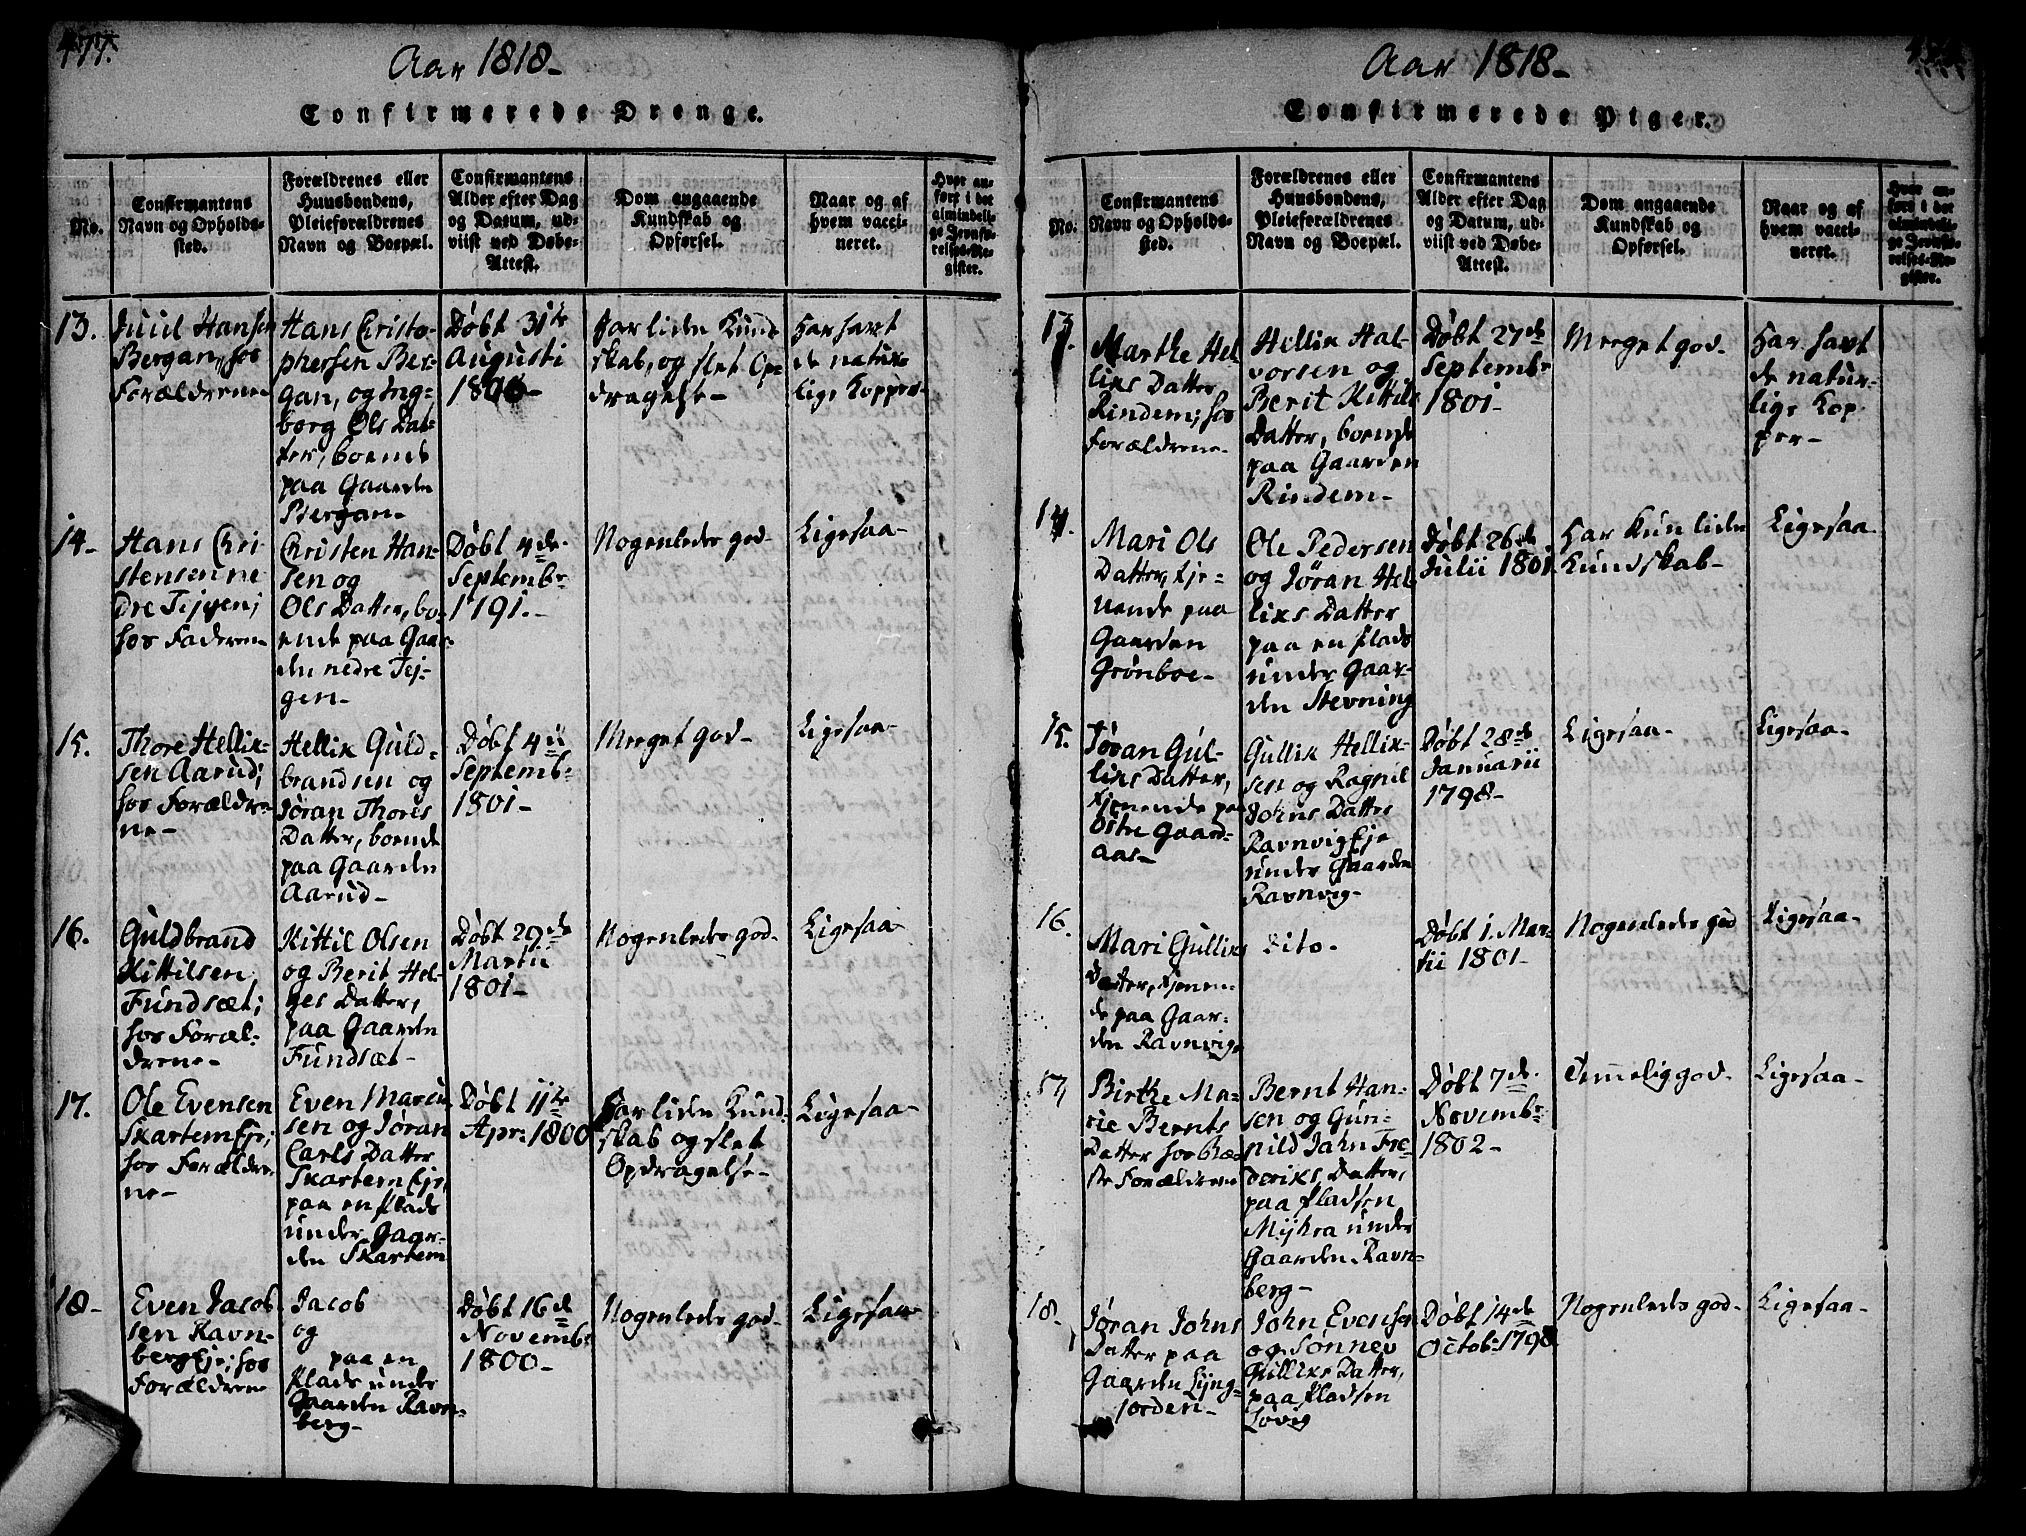 477.
Aar 1818-
Confirmerede Drenge.
No.
Confirmantens
Navn og Opholds-
sted.
Forældrenes eller
Huusbondens,
Pleieforældrenes
Navn og Boepæl.
Confirmantens
Alder efter Dag
og Datum, ud-
viist ved Døbe-
Attest.
Dom angaaende
Kundskab og
Opførsel.
Naar og af
hvem vacci-
neret.
Hvor an-
ført i det
almindeli-
ge Jevnfø-
relses-Re-
gister.
13.
Juul Hansen
Bergan, hos
Forældrene
Hans Christo-
phersen Ber-
gan, og Ing-
borg Ols Dat-
ter, boende
paa Gaarden
Bergan-
Døbt 31te
Augusti
Har liden Kund-
skab, og slet Op-
dragelse-
Har havt
de natur-
lige Kopper-
14-
Hans Chri-
stensen ne-
dre Tejgen;
hos Faderen
Christen Han-
sen og
Ols Datter, bo-
ende paa Gaar-
den nedre Tej-
gen-
Døbt 4de
Septembr
1791.-
Nogenledes god-
Ligesaa-
15.
Thore Hellik-
sen Aarud;
hos Forældre-
ne-
Hellik Guld-
brandsen og
Jøran Thores
Datter, boende
paa Gaarden
Aarud-
Døbt 4de
Septemb:
1801-
Meeget god-
Ligesaa-
16.
Guldbrand
Kittilsen
Fundsæt;
hos Foræl-
drene-
Kittil Olsen
og Berit Hel-
ges Datter,
paa Gaarden
Fundsæt-
Døbt 29de
Martii
1801-
Nogenledes god-
Ligesaa
17.
Ole Evensen
Skartem Eje;
hos Forældre-
ne-
Even Marcu-
sen og Jøran
Carls Datter
Skartem Eje,
paa en Plads
under Gaar-
den Skartem
Døbt 11te
Apr: 1800
Har liden Kund-
skab og slet
Opdragelse-
Ligesaa-
18-
Even Jacob-
sen Ravn-
berg Eje; hos
Forældrene
Jacob
og
paa en
Plads under
Gaarden Ravn-
berg-
Døbt 16de
Novemb:
1800-
Nogenledes god-
Ligesaa
Aar 1818-
Confirmerede Piger.
No.
Confirmantens
Navn og Opholds-
sted.
Forældrenes eller
Huusbondens,
Pleieforældrenes
Navn og Boepæl.
Confirmantens
Alder efter Dag
og Datum, ud-
viist ved Døbe-
Attest.
Dom angaaende
Kundskab og
Opførsel.
Naar og af
hvem vacci-
neret.
Hvor an-
ført i det
almindeli-
ge Jevnfø-
relses-Re-
gister.
13.
Marthe Hel-
liks Datter
Rindem; hos
Forældrene-
Hellik Hal-
vorsen og
Berit Kittils
Datter, boende
paa Gaarden
Rindem-
Døbt 27de
Septembr
1801-
Meeget god-
Har havt
de natur-
lige Kop-
per-
14.
Mari Ols
Datter, tje-
nende paa
Gaarden
Grønboe-
Ole Pedersen
og Jøran Hel-
liks Datter
paa en Plads
under Gaar-
den Stevning
Døbt 26de
Julii 1801.
Har Kun liden
Kundskab-
Ligesaa-
15.
Jøran Gul-
liks Datter,
tjenende paa
Østre Gaard-
aas-
Gullik Hellik-
sen og Ragnil
Johns Datter
Ravnvig Eje
under Gaarden
Ravnvig-
Døbt 28de
Januarii
1798-
Ligesaa-
Ligesaa-
16.
Mari Gulliks
Datter, tjenen-
de paa Gaar-
den Ravnvig-
Dito-
Døbt 1. Mar-
tii 1801-
Nogenledes god
Ligesaa-
17
Birthe Ma-
rie Bernts
Datter hos
Forældrene
Bernt Han-
sen og Gun-
nild Jahn Fre-
deriks Datter,
paa Pladsen
Myhra under
Gaarden Ravn-
berg-
Døbt 7de
Novembr
1802-
Temmelig god-
Ligesaa-
18-
Jøran Johns
Datter paa
Gaarden Lyng-
jorden-
John Evensen
og Sønnev
Gulliks Datter,
paa Pladsen
Løvig
Døbt 14de
Octob: 1798
Nogenledes god-
Ligesaa-